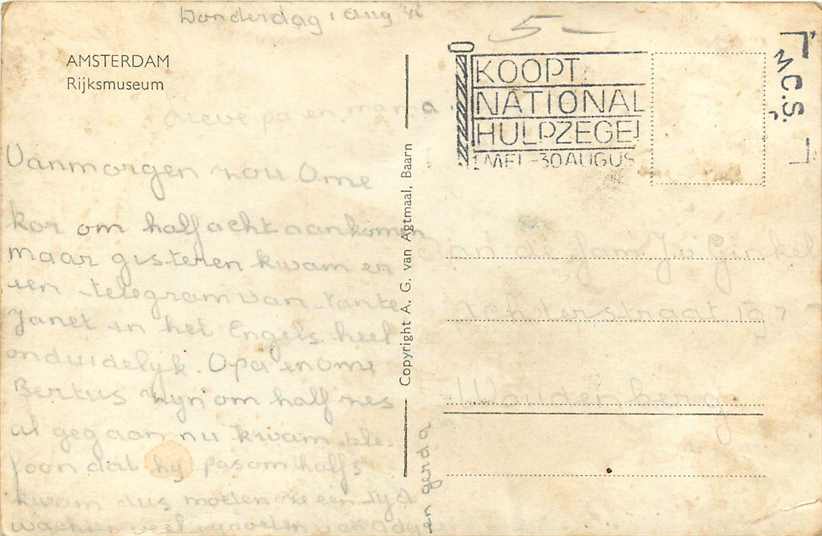 Donderdag 1 aug
5-
AMSTERDAM
Rijksmuseum
Lieve pa en mama.
Vanmorgen zou Ome
kor om half acht aankomen
maar gisteren kwam er
een telegram van tante
Janet in het Engels heel
onduidelyk. Opa en ome
Bertus zyn om half zes
al gegaan nu kwam tele
foon dat hy pas om half 5
kwam dus moeten ze een tyd
wachten veel groeten van
en gerda
Copyright A. G. van Agtmaal, Baarn
KOOPT
NATIONAL
HULPZEGE
MEI-30 AUGUS
M.C.S.
Fam. v. Ginkel
Achterstraat
Woudenberg